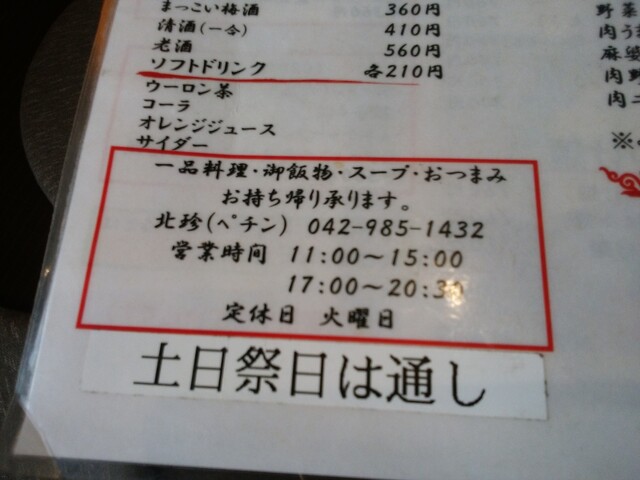 まっこい梅酒 360円
清酒(一合) 410円
老酒 560円
ソフトドリンク 各210円
ウーロン茶
コーラ
オレンジジュース
サイダー
一品料理・御飯物・スープ・おつまみ
お持ち帰り承ります。
北珍(ペチン) 042-985-1432
営業時间 11:00〜15:00
17:00〜20:30
定休日 火曜日
土日祭日は通し
野菜
肉う
麻婆
肉野
肉ニ
※